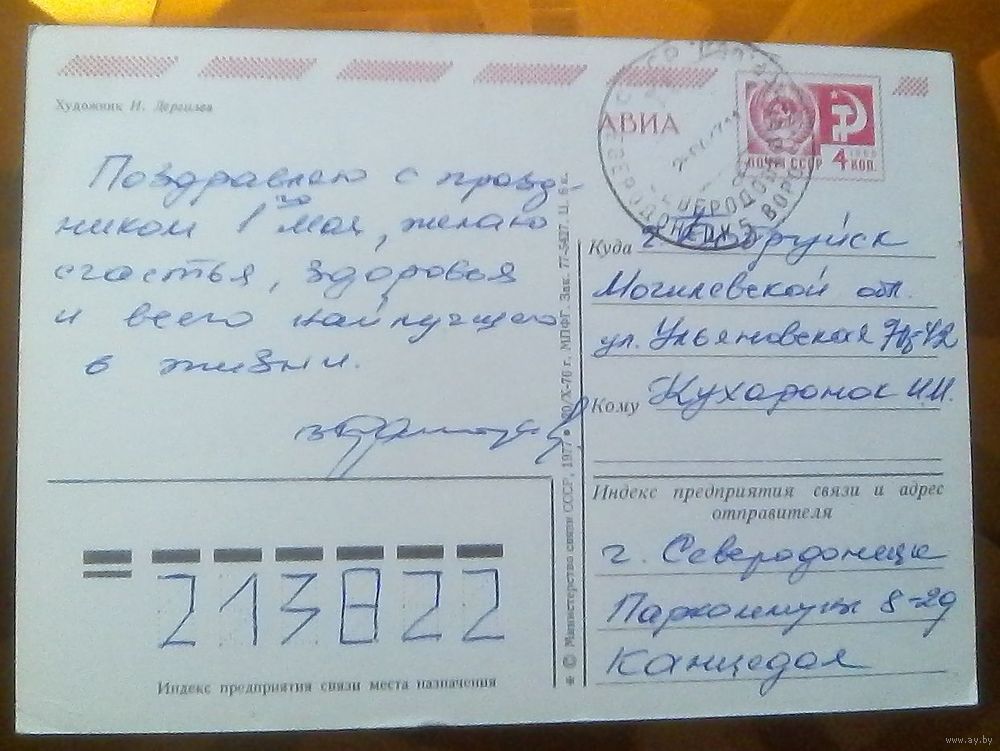 Художник И. Дергилев
АВИА
ПОЧТА СССР
4
1966
КОП.
Поздравляю с празд-
ником 1го Мая, желаю
счастья, здоровья
и всего наилучшего
в жизни.
Куда г. Бобруйск
Могилевской обл.
ул. Ульяновская
Кому Кухаронок И.И.
Индекс предприятия связи и адрес
отправителя
г. Северодонецк
Парткоммуны 8-29
Канцедал
213822
Индекс предприятия связи места назначения
© Министерство связи СССР, 1977 • 20/X-76 г. МПФГ. Зак. 77-5427. Ц. 6 к.
www.ay.by